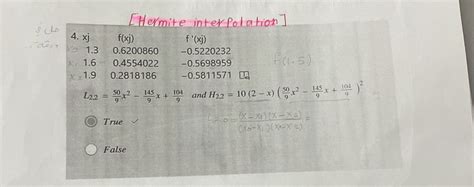 [Hermite interpolation]
4. xj f(xj) f '(xj)
1.3 0.6200860 -0.5220232
x₁ 1.6 0.4554022 -0.5698959 f(1.5)
x₂ 1.9 0.2818186 -0.5811571
L₂,₂ = 50/9 x² − 145/9 x + 104/9 and H₂,₂ = 10 (2 − x) (50/9 x² − 145/9 x + 104/9)²
True ✓
False